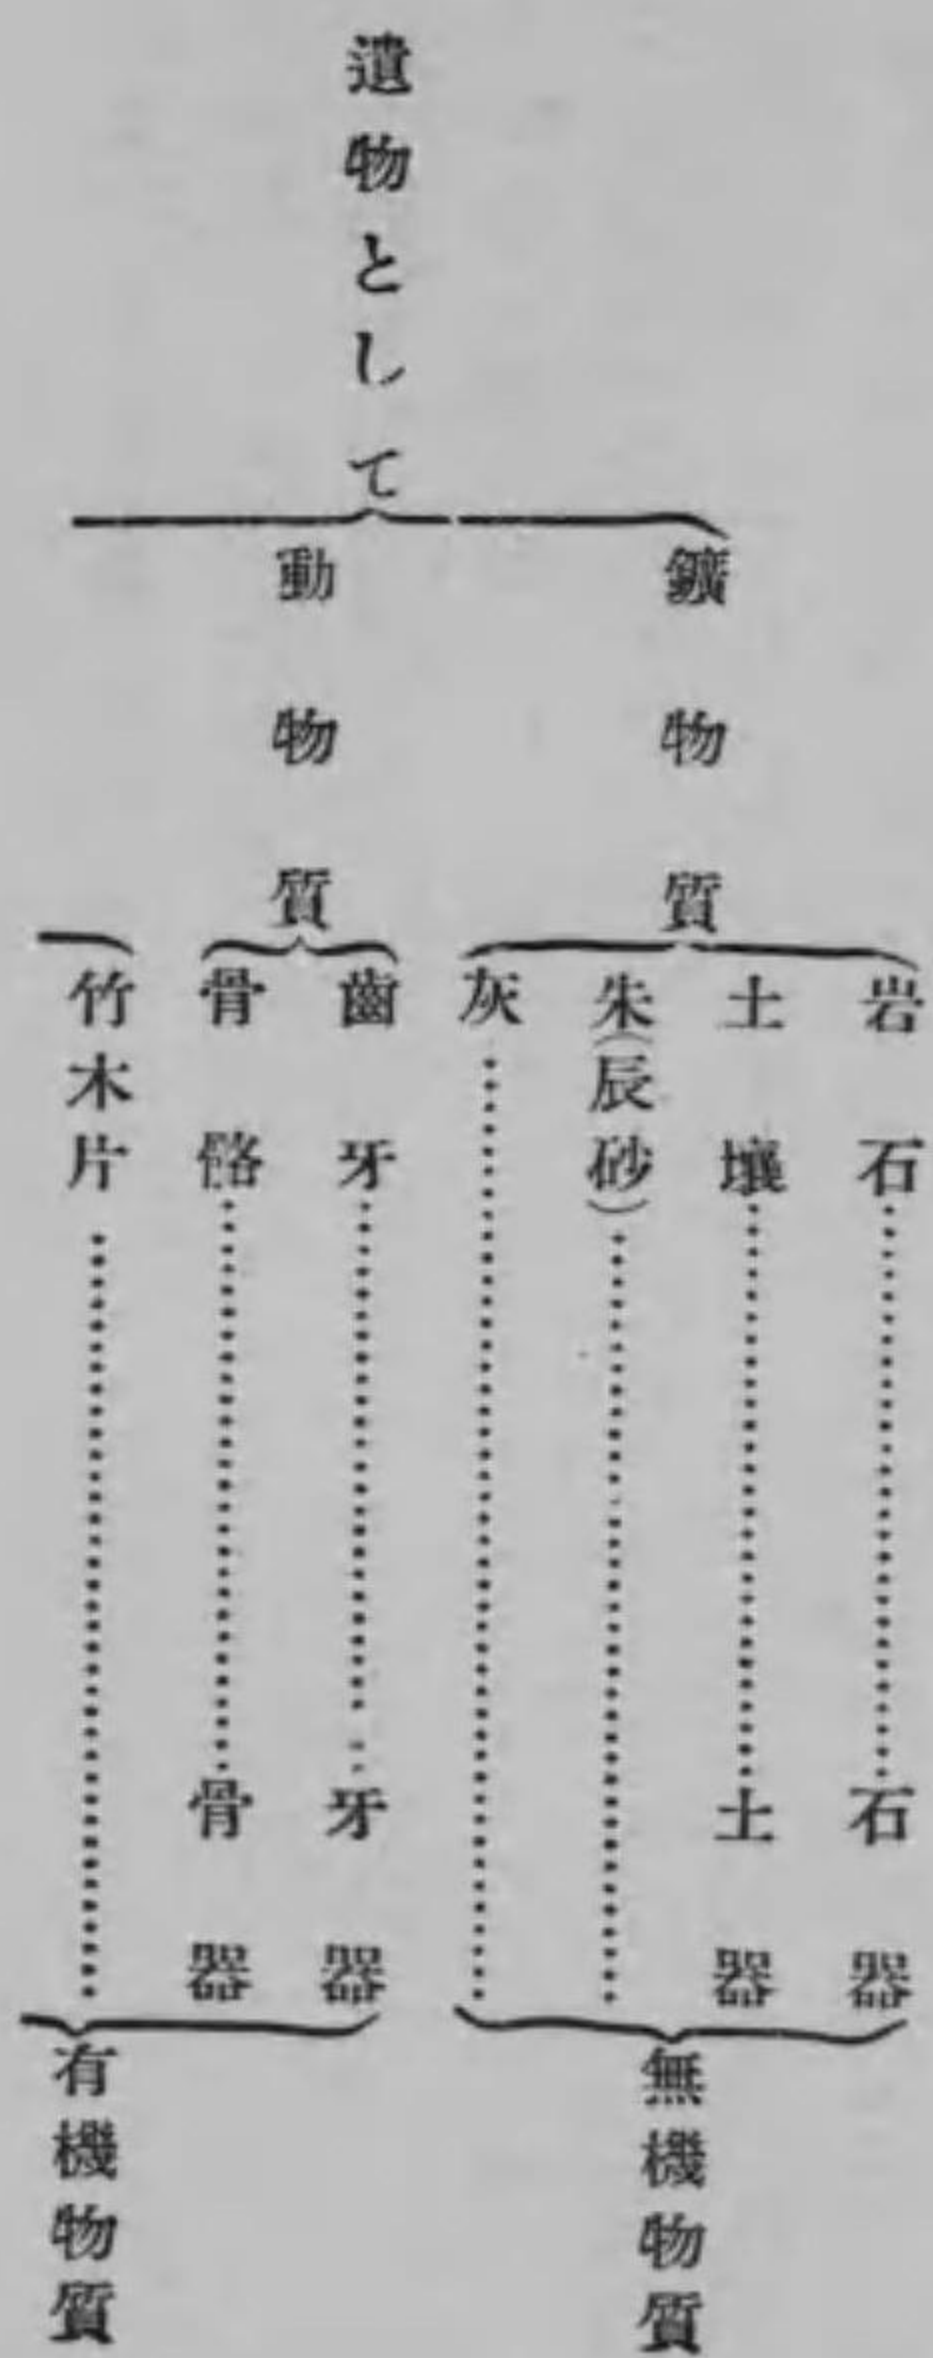 遺物として
鑛物質
岩石……石器
土壤……土器
朱(辰砂)……
灰……
無機物質
動物質
齒牙……牙器
骨骼……骨器
竹木片……
有機物質